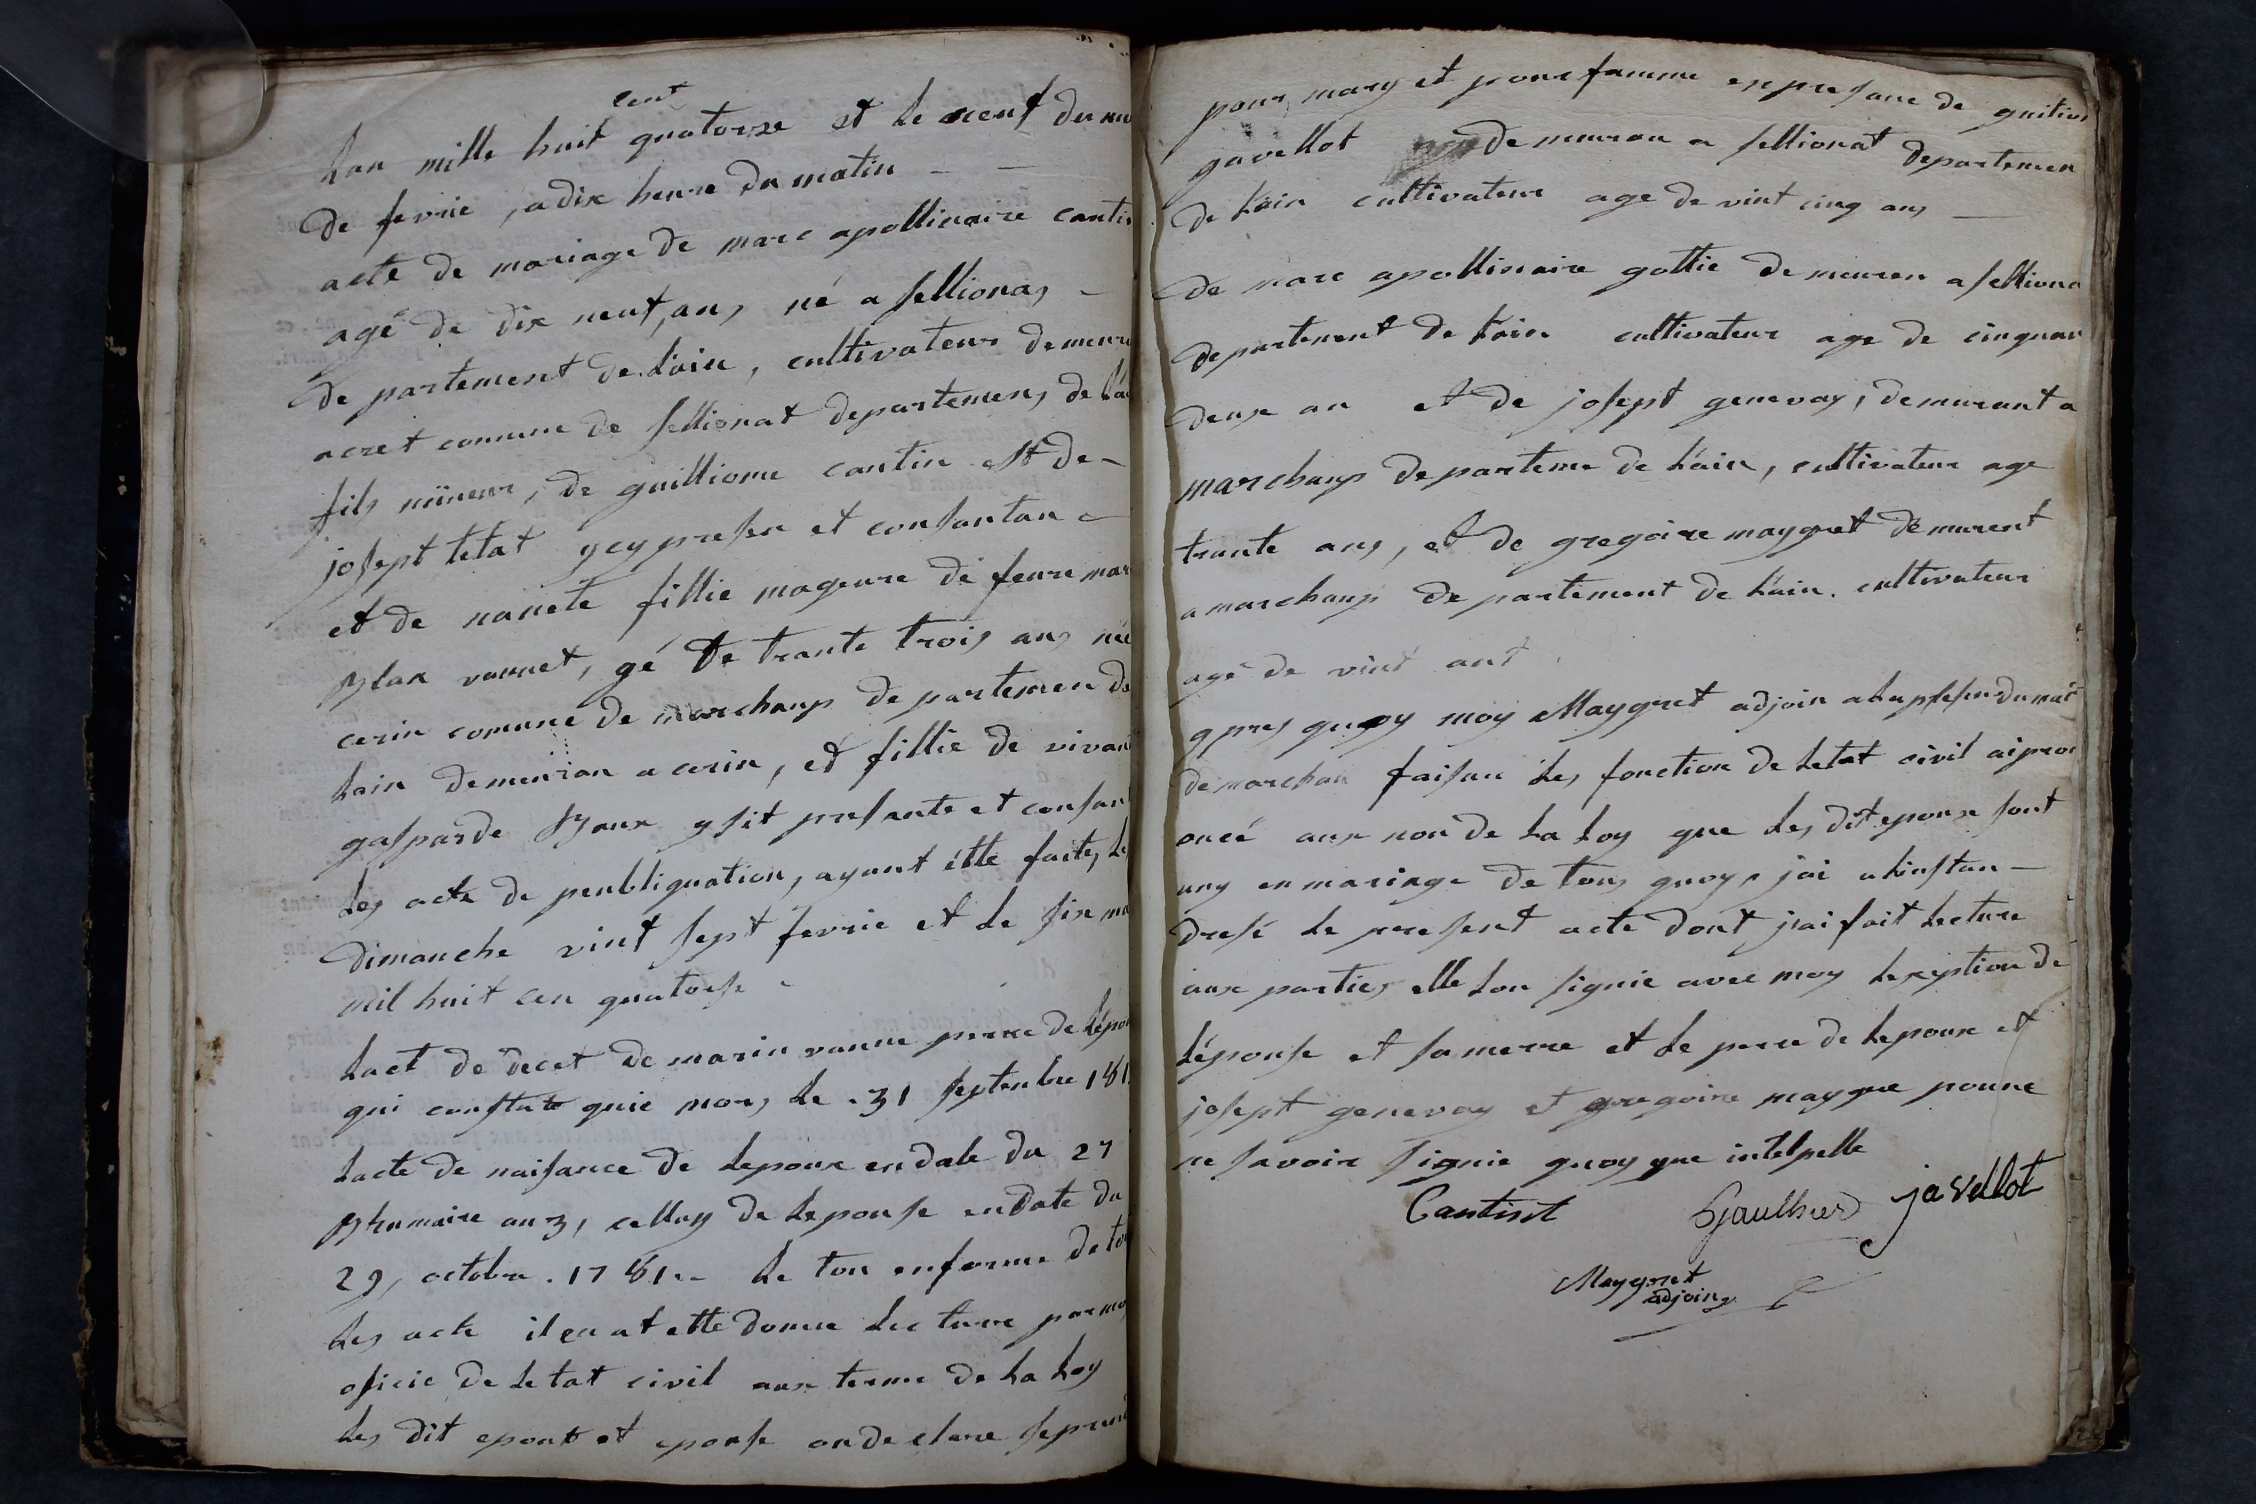 Lan mille huit cent quatorze et le neuf du mo
de fevrie, a dix heure du matin
acte de mariage de marc apollinaire cantin
agé de dix neuf, ans, né a sellionas
departement de Lain, cultivateur demeur
acret comune de sellionat departemens, de Lai
fils mineur, de guilliome cantin et de
josept tetat ycy presen et consantan
et de naneté fillie mageure de feure mar
vounet, gé de trante trois ans née
cerin comune de marchaup departemen de
Lain demeuran a cerin, et fillie de vivan
gasparde Roux y sit presante et consan
Les acte de peubliquation, ayant étte faites, Le
dimanche vint sept fevrie et le six ma
mil huit cen quatorse
Lact de decet de marin vanne perre de Lépou
qui constate quie mors le .31 septenbre 181
Lacte de naisance de Lepoux en date du 27
Brumaire an 3, celluy de Lepouse endate du
29, octobre . 1781.. Le tou enforme de tou
Les acte il en at ette donne Lecture par moy
oficie de Letat civil aux terme de La Loy
Les dit epoux et epouse on declare se prend
pour mary et pour famme expresanc de guitin
gavellot demeuran a sellionat departemen
de Lain cultivateur age de vint cinq ans
De marc apollinaire gottie demeuren aselliona
departement de Lain cultivateur age de cinquan
deux an et de josept genevay, demurant a
marchaup departeme de Lain, cultivateur age
trante ans, et de gregoire maygret demurent
a marchaup departement de Lain. cultivateur
agé de vint ant
apres quoy moy Maygret adjoin a du mair
de marchau faisan les fonction de Letat civil ai pron
oncé aux non de La Loy que Les dit epoux sont
uny en mariage de tous quoy, jai a Linstan
dresé Le present acte dont j'ai fait Lecture
aux parties elle Lon signie avec moy Lexeption de
Lépouse et sa merre et Le perre de Lepoux et
josept genevay et gregoire maygre poure
ne savoir signie quoy que intelpelle
Cantint Gaulhier javellot
Maygret
adjoin